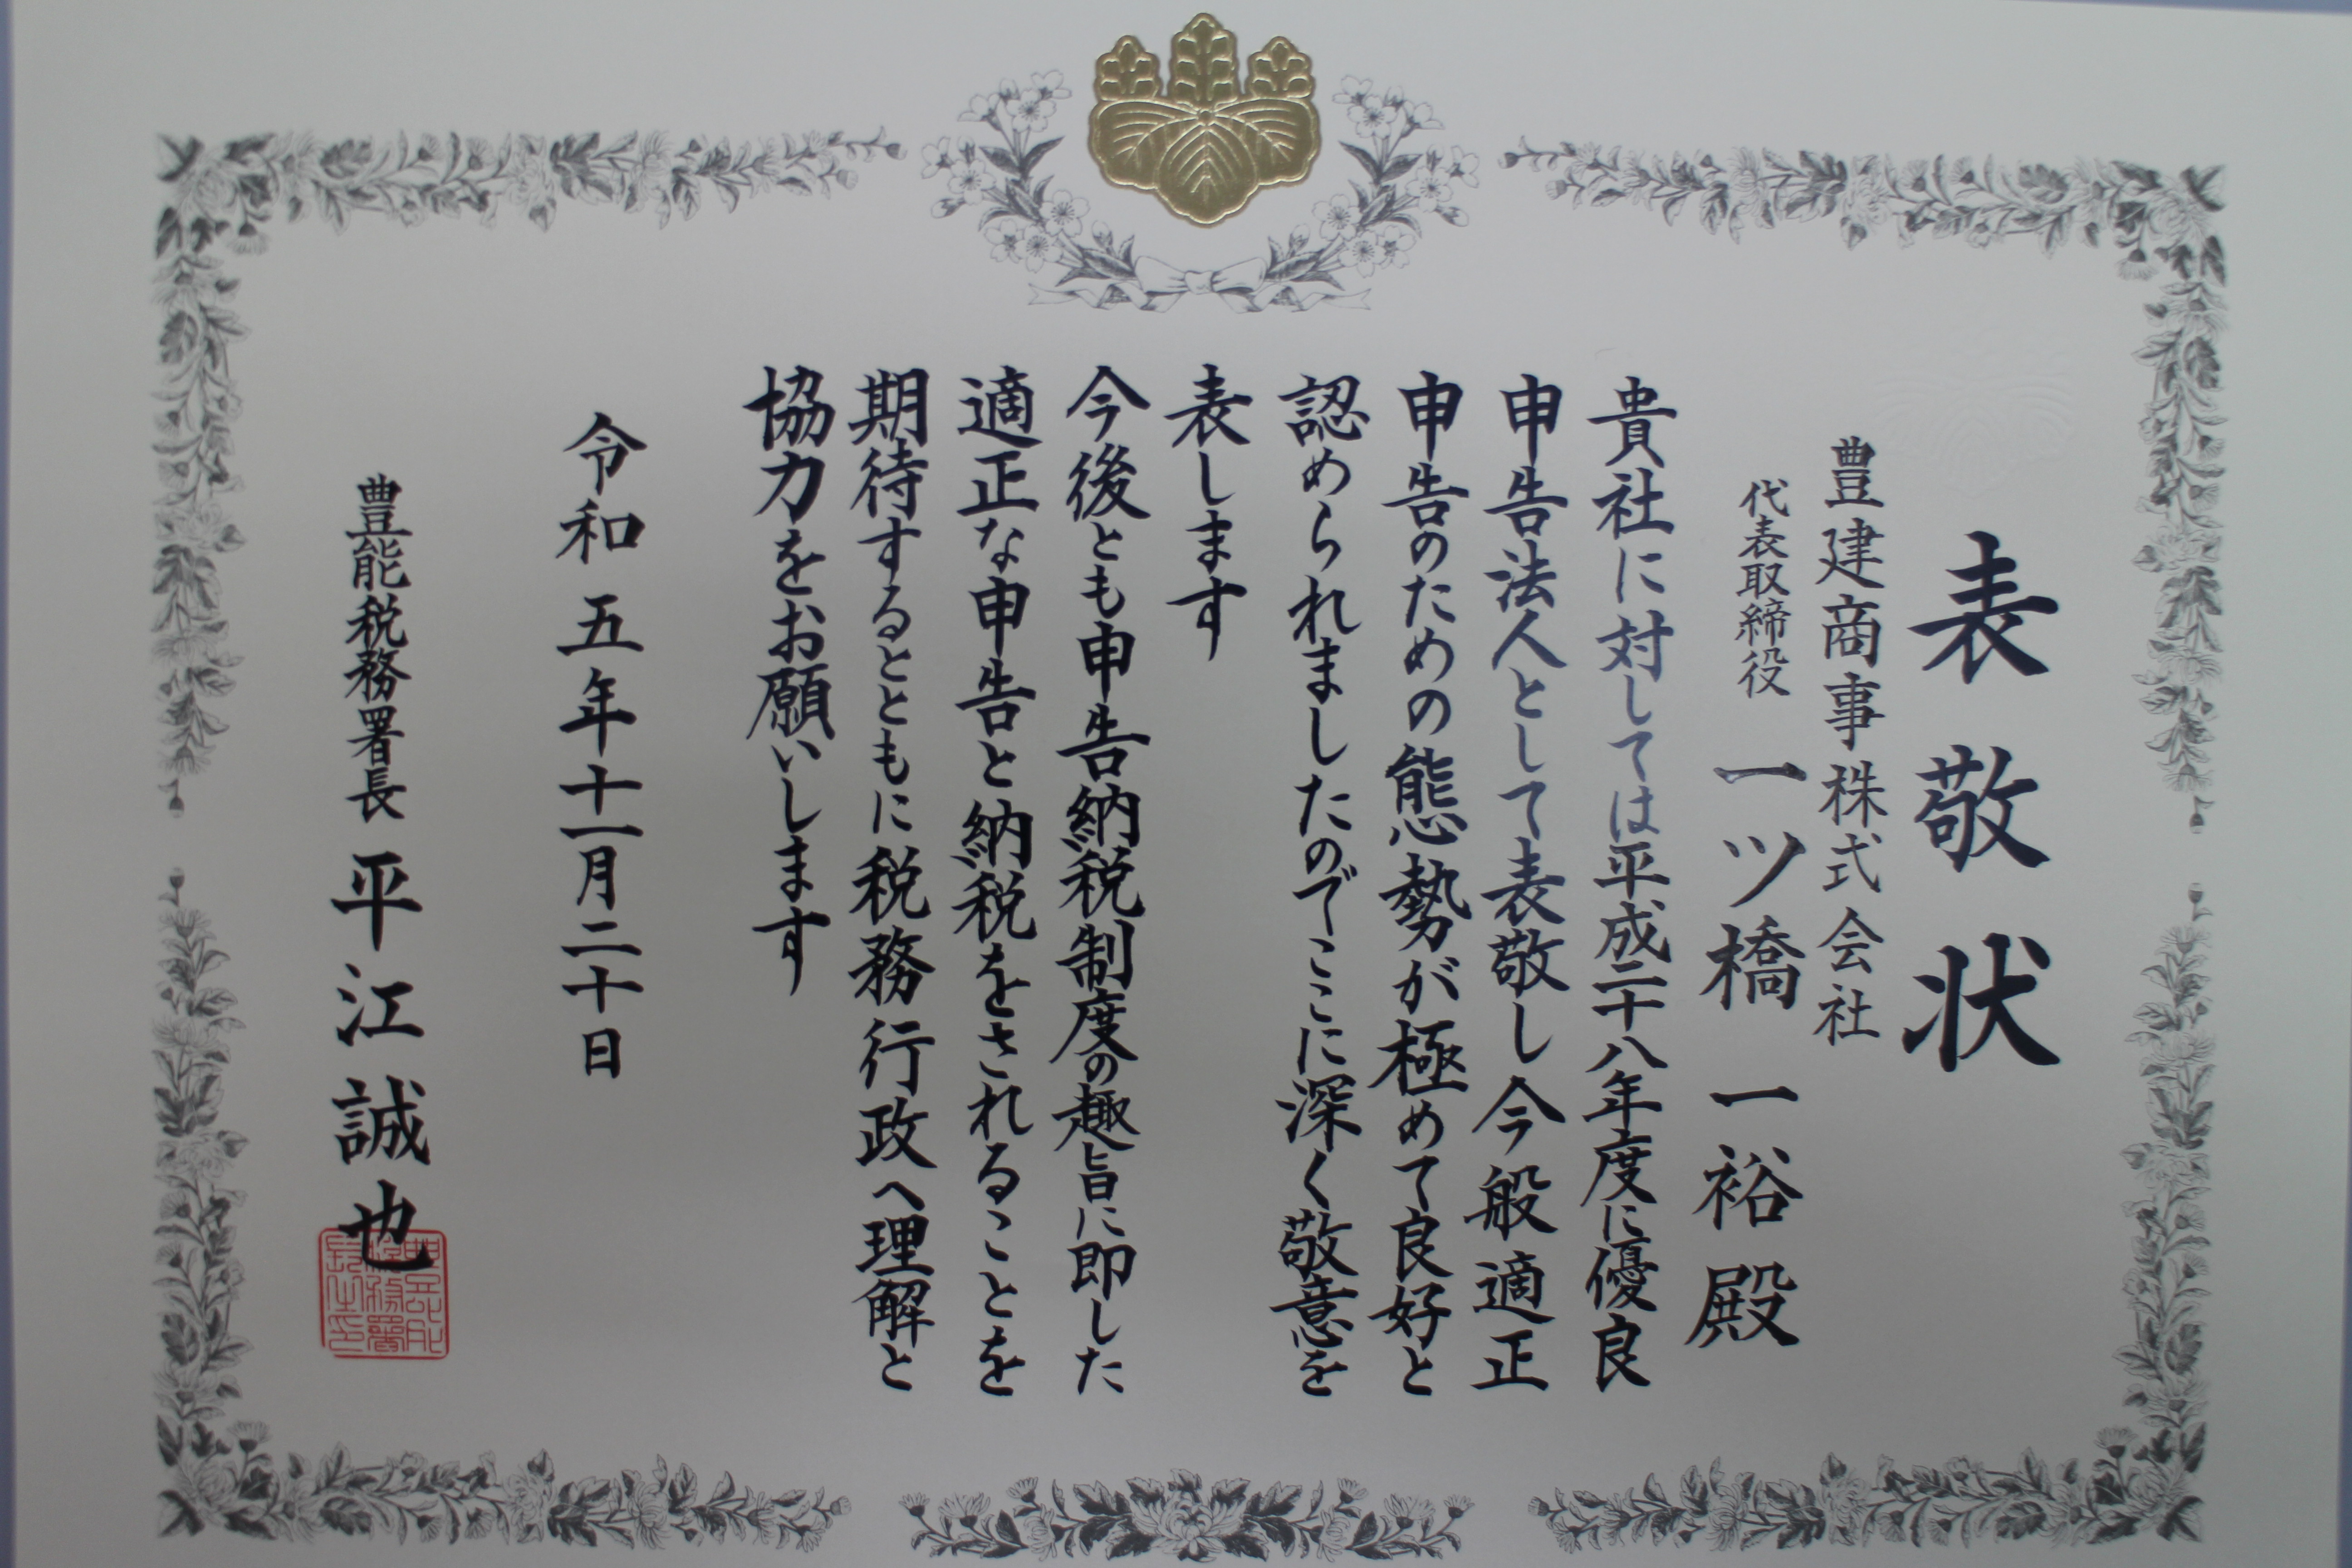 表敬状
豊建商事株式会社
代表取締役 一ツ橋 一裕 殿
貴社に対しては平成二十八年度に優良
申告法人として表敬し今般適正
申告のための態勢が極めて良好と
認められましたのでここに深く敬意を
表します
今後とも申告納税制度の趣旨に即した
適正な申告と納税をされることを
期待するとともに税務行政へ理解と
協力をお願いします
令和五年十一月二十日
豊能税務署長 平江誠也
豊能
税務署
長之印